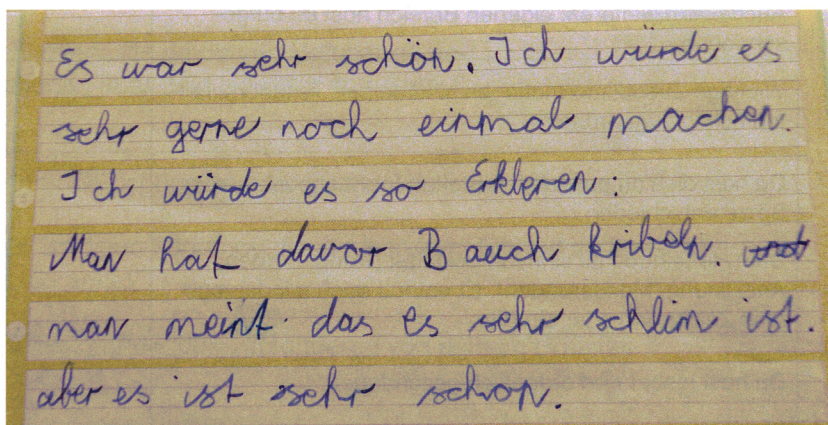 Es war sehr schön. Ich würde es
sehr gerne noch einmal machen.
Ich würde es so Erkleren:
Man hat davor Bauch kribeln. und
man meint das es sehr schlim ist.
aber es ist sehr schon.